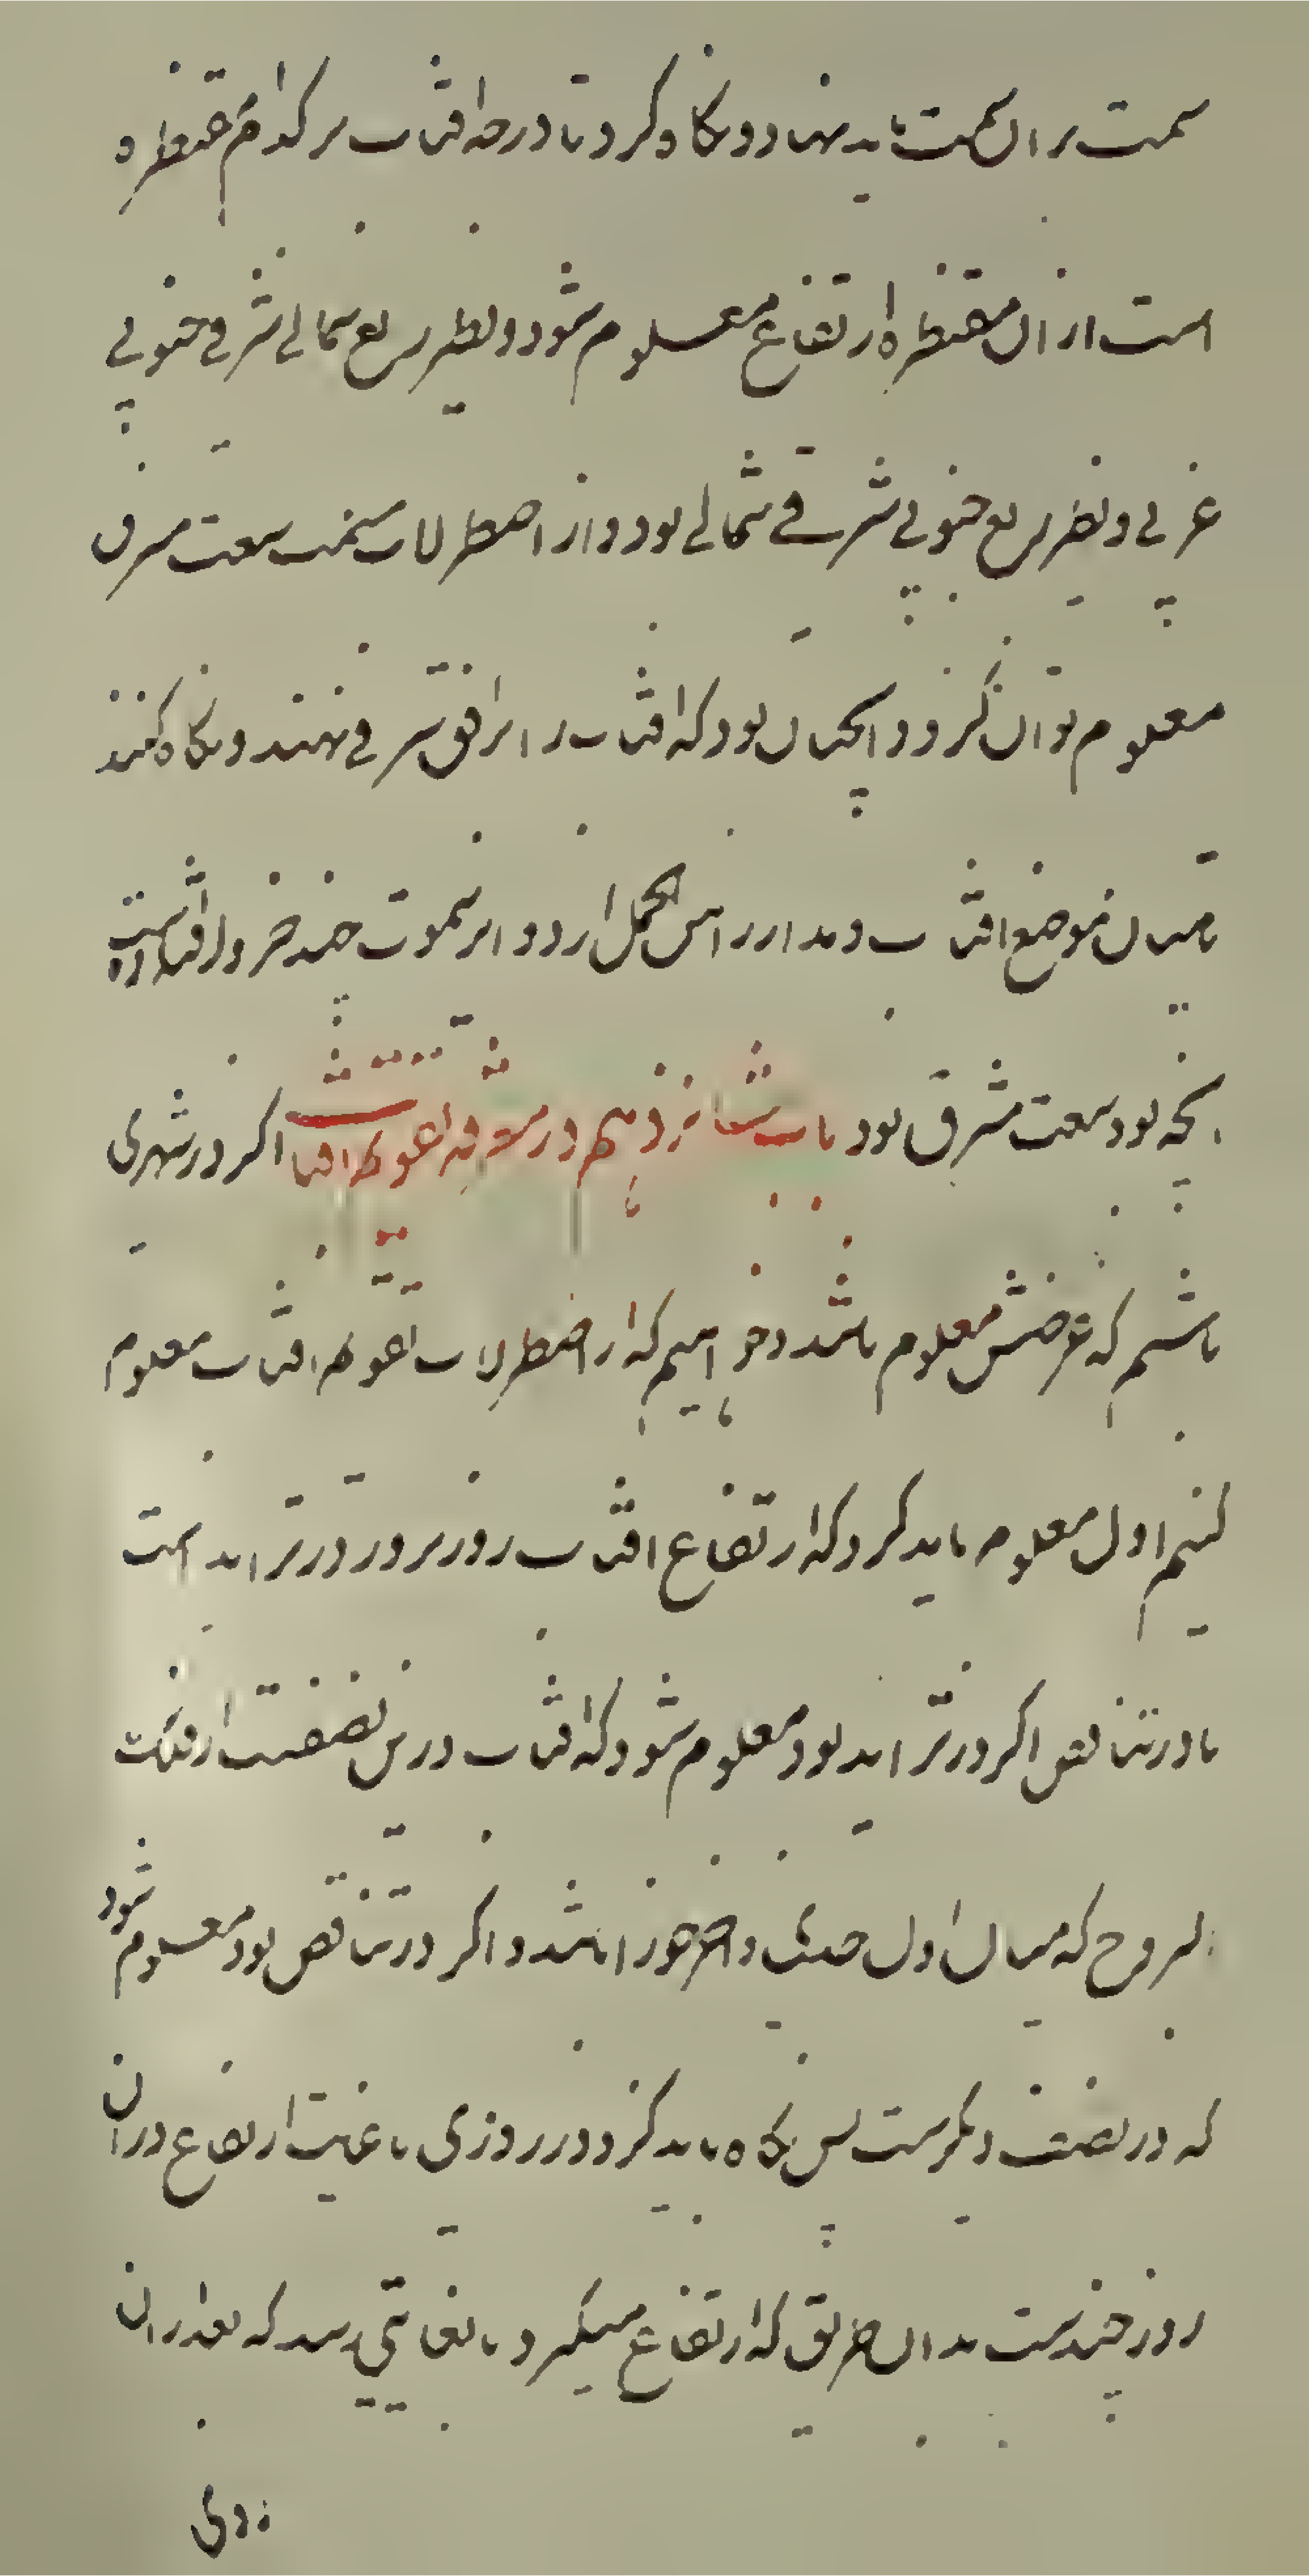 سمت بر ان سمت باید نهاد و نکاه کرد تا درجه افتاب بر کدام مقنطره
است از ان مقنطره ارتفاع معلوم شود و نظیر ربع شمالی شرقی جنوبی
غربی و نظیر ربع جنوبی شرقی شمالی بود و از اصطرلاب سخت سعت مشرق
معلوم توان کرد و انچنان بود که افتاب را بر افق شرقی نهند و نکاه کنند
تا میان موضع افتاب و مدار راس الحمل از دوایر سموت چند جزو افتاده است
انچه بود سعت مشرق بود باب شانزدهم در معرفة تقویم افتاب اکر در شهری
باشیم که عرضش معلوم باشد و خواهیم که از اصطرلاب تقویم افتاب معلوم
کنیم اول معلوم باید کرد که ارتفاع افتاب روز بروز در تزاید است
یا در تناقص اکر در تزاید بود معلوم شود که افتاب در نصفیست از فلک
البروج که میان اول جدی و اخر جوزا باشد و اکر در تناقص بود معلوم شود
که در نصف دیکرست پس نکاه باید کرد در روزی تا غایت ارتفاع در ان
روز چندست بدان طریق که ارتفاع میکیرد تا بغایتی رسد که بعد از ان
روی